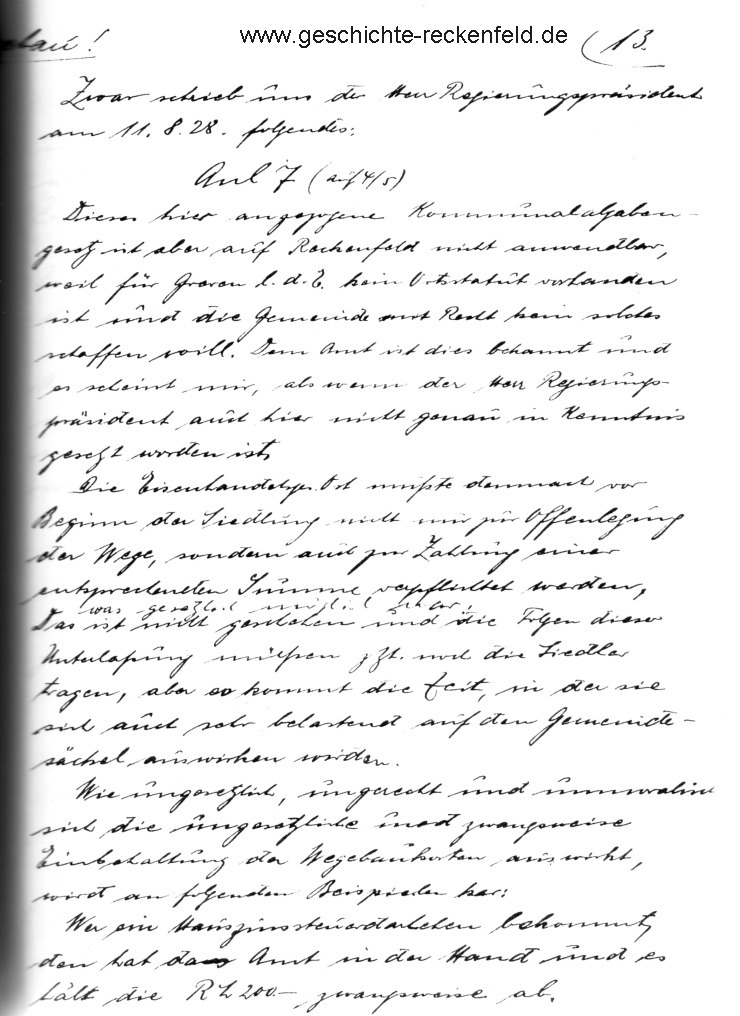 www.geschichte-reckenfeld.de
bau! (13.
Zwar schrieb uns der Herr Regierungspräsident
am 11.8.28. folgendes:
Anl 7 (auf 4/5)
Dieses hier angezogene Kommunalabgaben-
gesetz ist aber auf Reckenfeld nicht anwendbar,
weil für Greven l. d. E. kein Ortsstatut vorhanden
ist und die Gemeinde mit Recht kein solches
schaffen will. Dem Amt ist dies bekannt und
es scheint mir, als wenn der Herr Regierungs-
präsident auch hier nicht genau in Kenntnis
gesetzt worden ist,
Die Eisenhandelsges. Ost mußte demnach vor
Beginn der Siedlung nicht nur zur Offenlegung
der Wege, sondern auch zur Zahlung einer
entsprechenden Summe verpflichtet werden,
was gesetzlich möglich
Das ist nicht geschehen und die Folgen dieser
Unterlaßung müßen zzt. noch die Siedler
tragen, aber es kommt die Zeit, in der sie
sich auch sehr belastend auf den Gemeinde-
säckel auswirken würden.
Wie ungesetzlich, ungerecht und unmoralisch
sich die ungesetzliche und zwangsweise
Einbehaltung der Wegebaukosten auswirkt,
wird an folgenden Beispielen klar:
Wer ein Hauszinssteuerdarlehen bekommt,
den hat das Amt in der Hand und es
hält die RM 200.– zwangsweise ab.